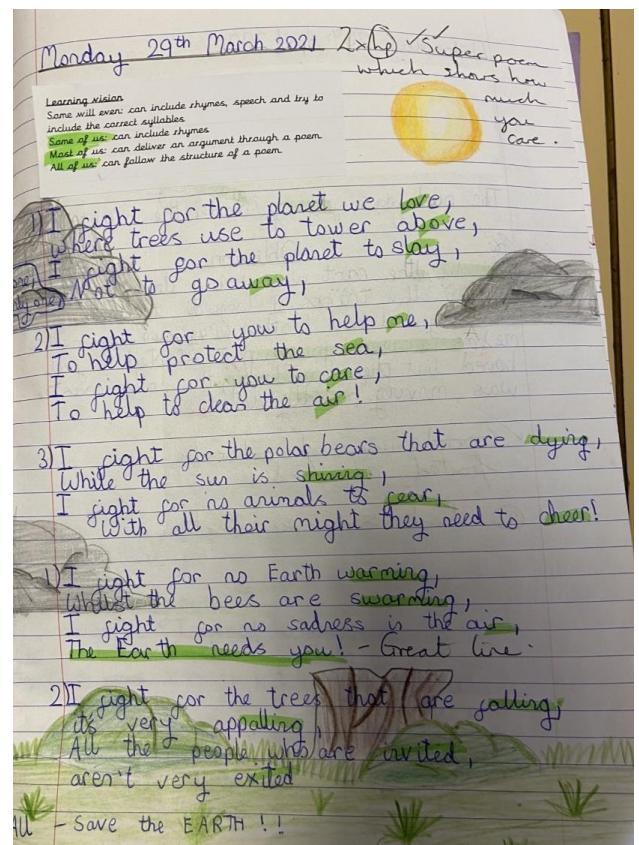 Monday 29th March 2021
2x hp ✓✓ Super poem
which shows how
much
you
care.
Learning vision
Some will even: can include rhymes, speech and try to
include the correct syllables
Some of us: can include rhymes
Most of us: can deliver an argument through a poem
All of us: can follow the structure of a poem
1) I fight for the planet we love,
where trees use to tower above,
I fight for the planet to stay,
Not to go away,
2) I fight for you to help me,
To help protect the sea,
I fight for you to care,
To help to clean the air!
3) I fight for the polar bears that are dying,
While the sun is shining,
I fight for no animals to fear,
With all their might they need to cheer!
1) I fight for no Earth warming,
Whilst the bees are swarming,
I fight for no sadness is the air,
The Earth needs you! - Great line.
2) I fight for the trees that are falling,
it's very appalling,
All the people who are invited,
aren't very exited
All - Save the EARTH!!